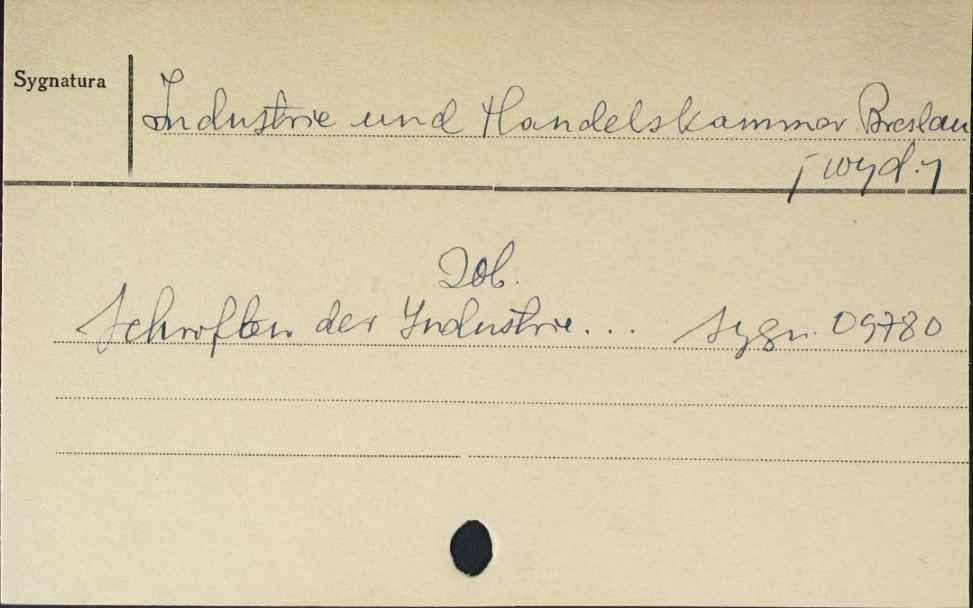 Sygnatura
Industrie und Handelskammer Breslau
[wyd.]
Zob.
Schriften der Industrie... sygn. 09780